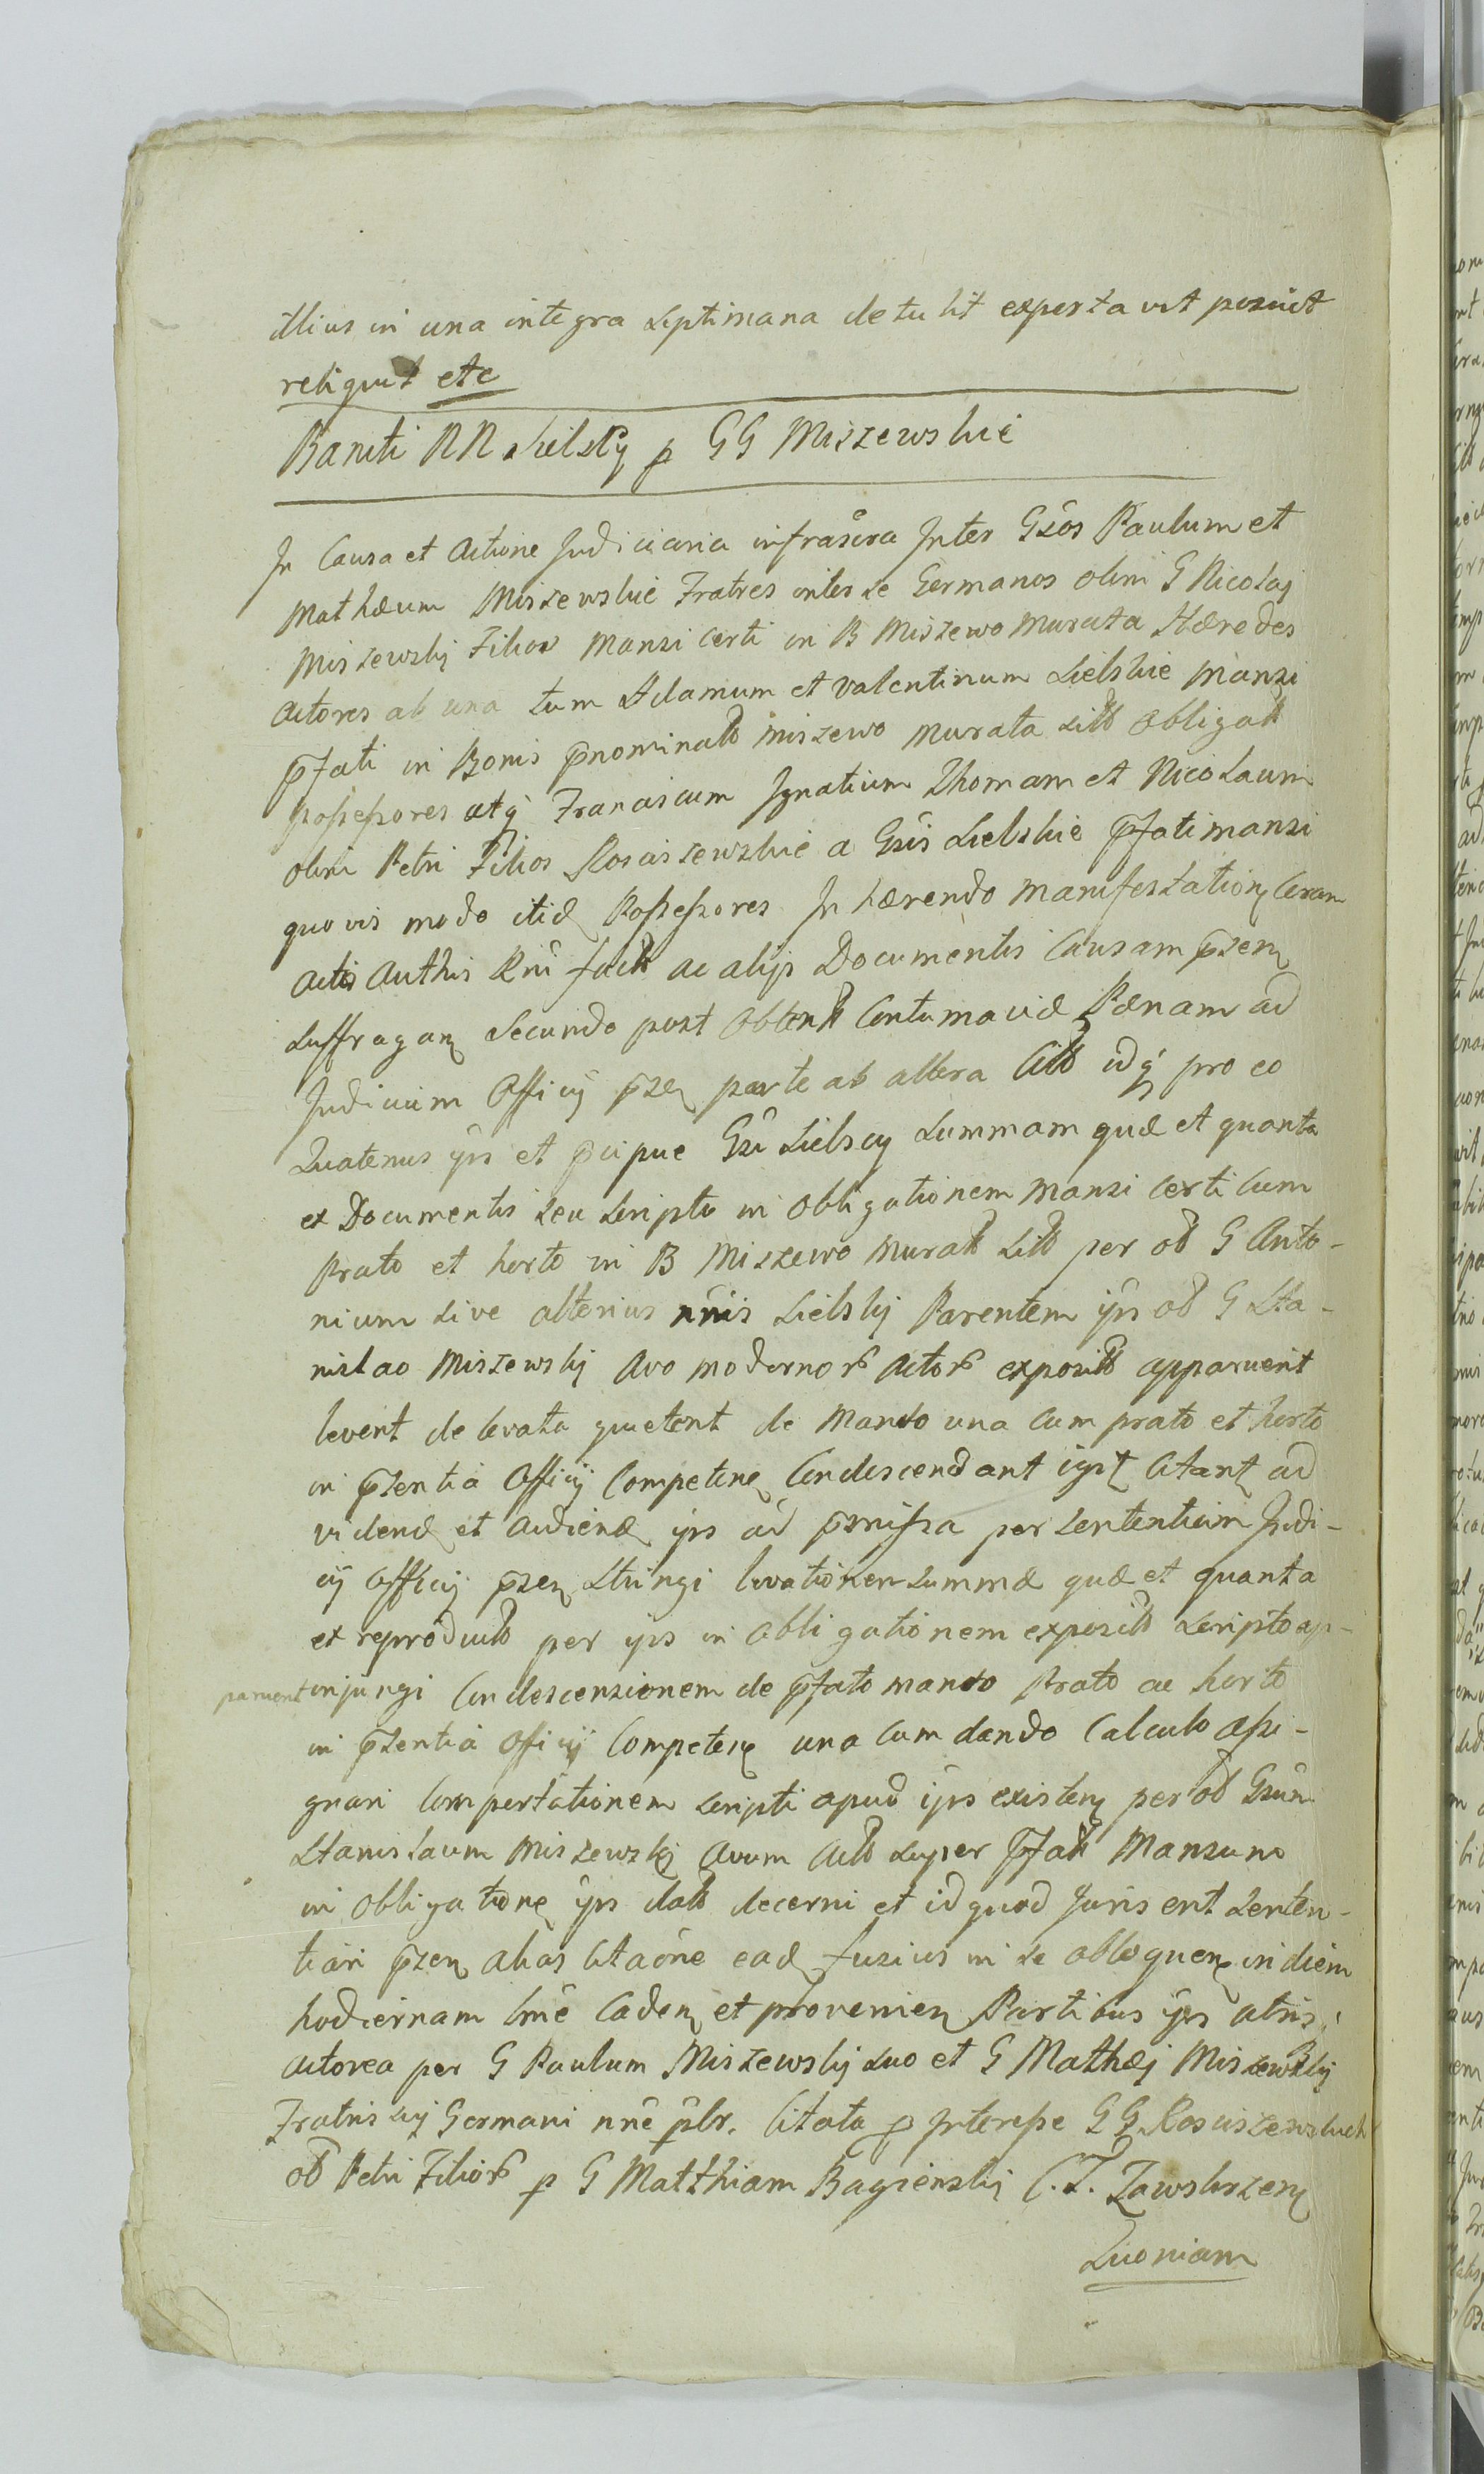 illius in una integra Septimana detulit exportavit posuit
reliquit etc
Baniti NN Sielscy p GG Miszewskie
In Causa et Actione Judiciaria infrascra Inter Gsos Paulum et
Mathæum Miszewskie Fratres inter se Germanos olim G Nicolaj
Miszewskij Filios Mansi certi in B Miszewo Murata Hæredes
Actores ab una tum Adamum et Valentinum Sielskie Mansi
pfati in Bonis pnominat Miszewo Murata Sit Obligat
Possessores atq Franciscum Ignatium Thomam et Nicolaum
olim Petri Filios Kosciszewskie a Gsis Sielskie pfati mansi
quovis modo itid Possessores Inhærendo Manifestation Coram
Actis Authis Rni fact ac alijs Documentis Causam pzen
Suffragan Secundo post Obtent Contumaciæ Pænam ad
Judicium Officij pzen parte ab altera Cit idq pro eo
Quatenus ips et pcipue Gsi Sielscy Summam quæ et quanta
ex Documentis seu Scripto in Obligationem Mansi certi cum
Prato et horto in B Miszewo Murat Sit per od G Anto-
nium sive alterius nnis Sielskij Parentem ips od G Sta-
nislao Miszewskij Avo modernor Actor exposit apparuerit
levent de levata quietent de Manso una cum prato et horto
in pzentia Officij Competen Condescendant ipst Citant ad
vidend et Audiend ips ad pmissa per Sententiam Judi-
cij Officij pzen Stringi levationem Summæ quæ et quanta
ex reproduct per ips in Obligationem exposit Scripto ap-
paruerit injungi Condescensionem de pfato manso Prato ac horto
in pzentia Oficij Competen una cum dando Calculo assi-
gnari Comportationem Scripti apud ips existen per od Gsum
Stanislaum Miszewskij Avum Act super pfat Mansum
in Obligatione ips dat decerni et id quod Juris erit Senten-
tiari pzen alias Citaone ead fusius in se obloquen in diem
hodiernam lme Caden et provenien Partibus ips atris
Actorea per G Paulum Miszewskij Suo et G Mathæj Miszewskij
Fratris sij Germani nne plr. Citata p Interesse GG Kosciszewskich
od Petri Filior p G Matthiam Bagienskij C. T. Zawskrzen
Quoniam